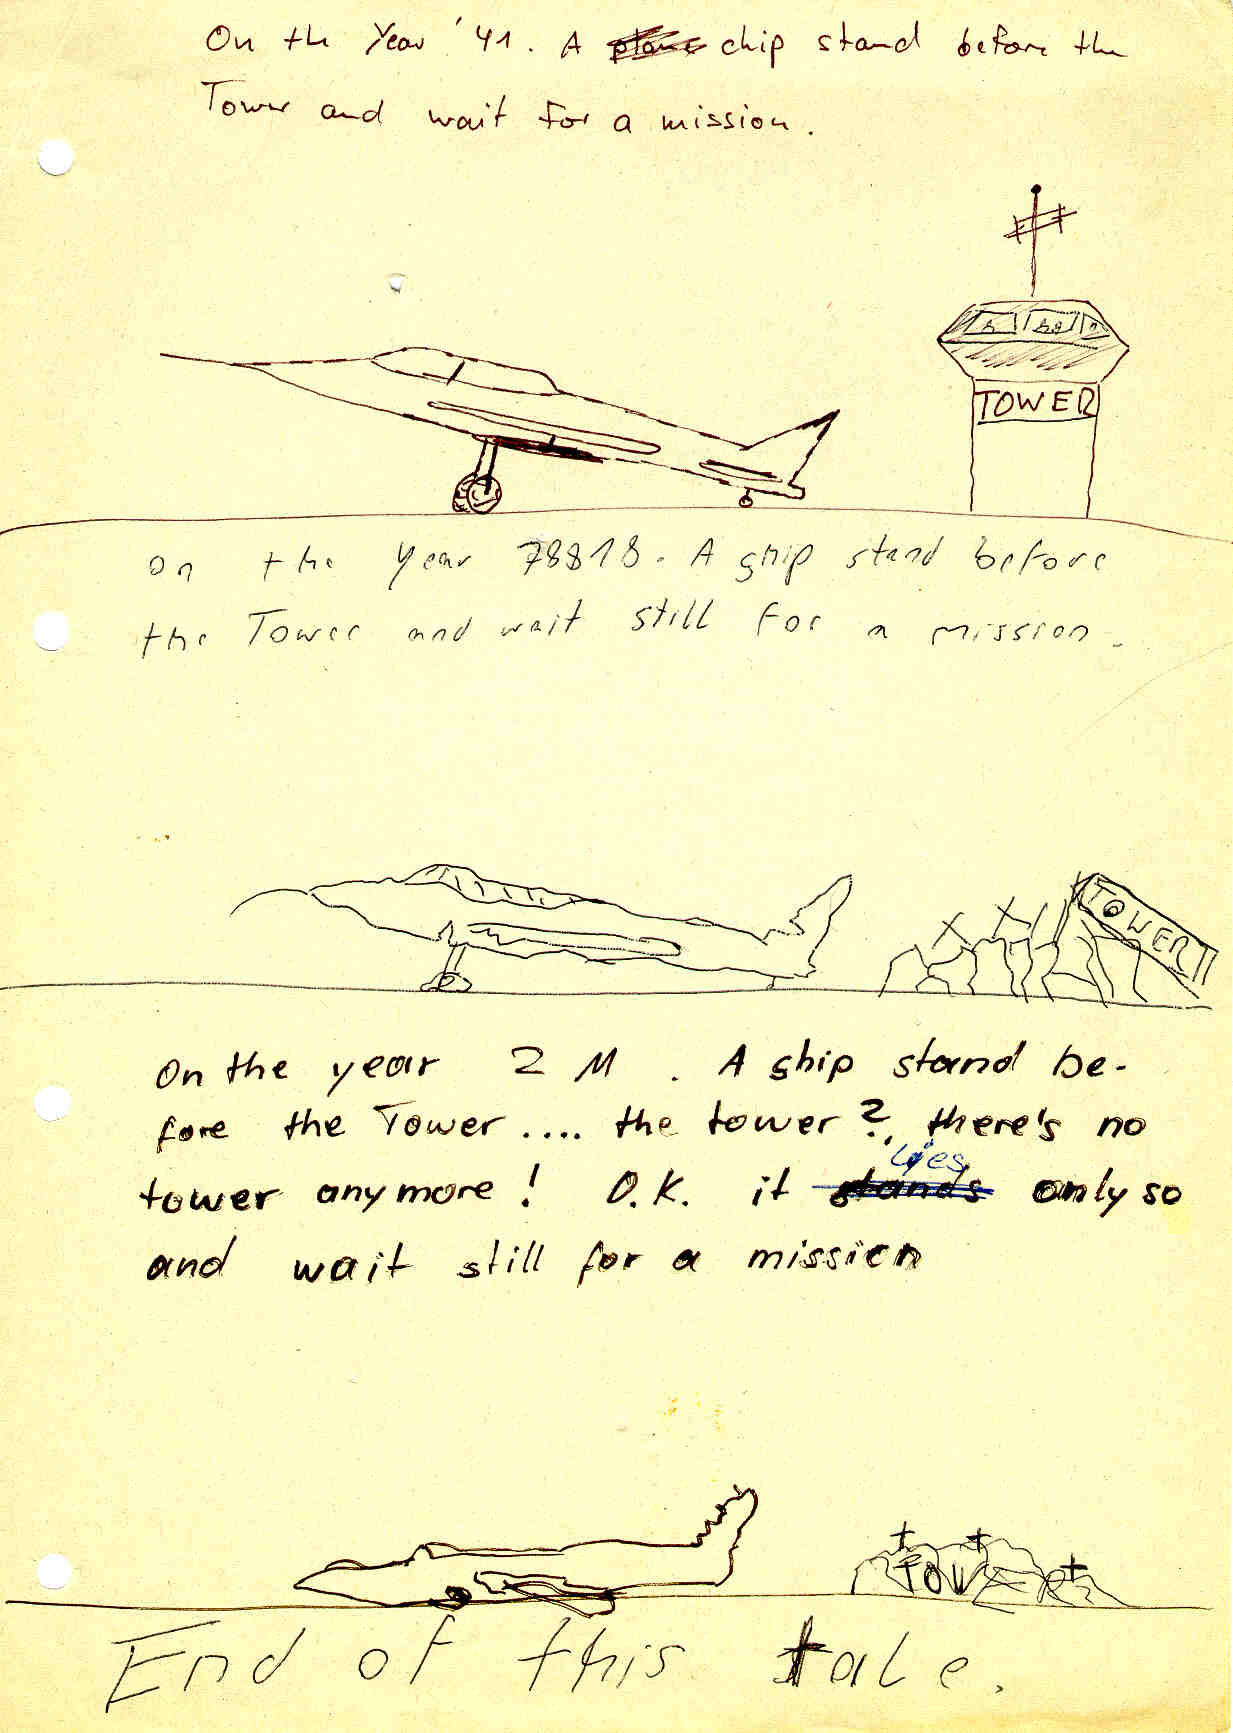 On the Year '41. A plane chip stand before the
Tower and wait for a mission.
TOWER
On the Year 78818. A ship stand before
the Tower and wait still for a mission.
TOWER
On the year 2 M. A ship stand be-
fore the Tower.... the tower? there's no
lies
tower anymore! O.K. it stands only so
and wait still for a mission
TOWER
End of this tale.